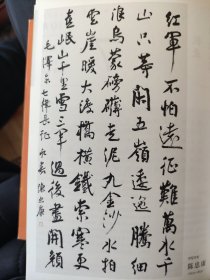 紅軍不怕遠征難萬水千
山只等閑五嶺逶迤騰細
浪烏蒙磅礴走泥丸金沙水拍
雲崖暖大渡橋橫鐵索寒更
喜岷山千里雪三軍過後盡開顏
毛澤東七律長征
陈忠康